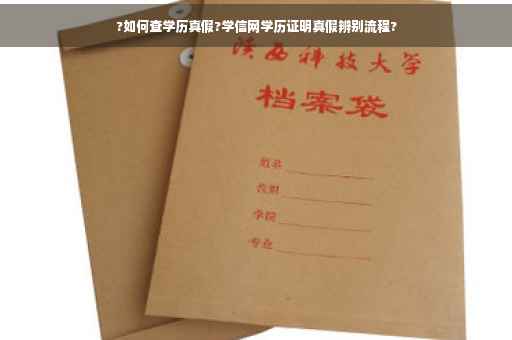 ?如何查学历真假?学信网学历证明真假辨别流程?
陕西科技大学
档案袋
姓名
学院
专业